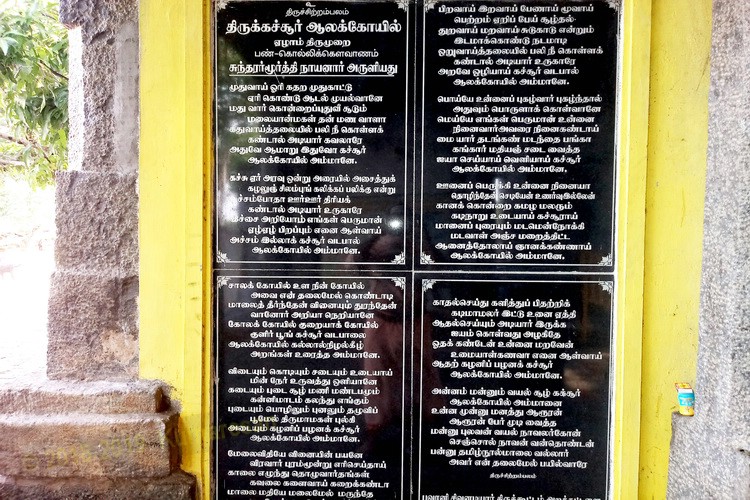 திருச்சிற்றம்பலம்
திருக்கச்சூர் ஆலக்கோயில்
ஏழாம் திருமுறை
பண்-கொல்லிக்கௌவாணம்
சுந்தரர்மூர்த்தி நாயனார் அருளியது
முதுவாய் ஓரி கதற முதுகாட்டு
எரி கொண்டு ஆடல் முயல்வானே
மது வார் கொன்றைப்புதுவீ சூடும்
மலையான்மகள் தன் மண வாளா
கதுவாய்த்தலையில் பலி நீ கொள்ளக்
கண்டால் அடியார் கவலாரே
அதுவே ஆமாறு இதுவோ கச்சூர்
ஆலக்கோயில் அம்மானே.
கச்சு ஏர் அரவு ஒன்று அரையில் அசைத்துக்
கழலுஞ் சிலம்பும் கலிக்கப் பலிக்கு என்று
உச்சம்போதா ஊர்ஊர் திரியக்
கண்டால் அடியார் உருகாரே
இச்சை அறியோம் எங்கள் பெருமான்
ஏழ்ஏழ் பிறப்பும் எனை ஆள்வாய்
அச்சம் இல்லாக் கச்சூர் வடபால்
ஆலக்கோயில் அம்மானே.
சாலக் கோயில் உள நின் கோயில்
அவை என் தலைமேல் கொண்டாடி
மாலைத் தீர்ந்தேன் வினையும் துரந்தேன்
வானோர் அறியா நெறியானே
கோலக் கோயில் குறையாக் கோயில்
குளிர் பூங் கச்சூர் வடபாலை
ஆலக்கோயில் கல்லால்நிழல்கீழ்
அறங்கள் உரைத்த அம்மானே.
விடையும் கொடியும் சடையும் உடையாய்
மின் நேர் உருவத்து ஒளியானே
கடையும் புடை சூழ் மணி மண்டபமும்
கன்னிமாடம் கலந்து எங்கும்
புடையும் பொழிலும் புனலும் தழுவிப்
பூமேல் திருமாமகள் புல்கி
அடையும் கழனிப் பழனக் கச்சூர்
ஆலக்கோயில் அம்மானே.
மேலைவிதியே வினையின் பயனே
விரவார் புரம்மூன்று எரிசெய்தாய்
காலை எழுந்து தொழுவார்தங்கள்
கவலை களைவாய் கறைக்கண்டா
மாலை மதியே மலைமேல் மருந்தே
பிறவாய் இறவாய் பேணாய் மூவாய்
பெற்றம் ஏறிப் பேய் சூழ்தல்
துறவாய் மறவாய் சுடுகாடு என்றும்
இடமாக்கொண்டு நடமாடி
ஒறுவாய்த்தலையில் பலி நீ கொள்ளக்
கண்டால் அடியார் உருகாரே
அறவே ஒழியாய் கச்சூர் வடபால்
ஆலக்கோயில் அம்மானே.
பொய்யே உன்னைப் புகழ்வார் புகழ்ந்தால்
அதுவும் பொருளாக் கொள்வானே
மெய்யே எங்கள் பெருமான் உன்னை
நினைவார்அவரை நினைகண்டாய்
மை யார் தடங்கண் மடந்தை பங்கா
கங்கார் மதியஞ் சடை வைத்த
ஐயா செய்யாய் வெளியாய் கச்சூர்
ஆலக்கோயில் அம்மானே.
ஊனைப் பெருக்கி உன்னை நினையா
தொழிந்தேன் செடியேன் உணர்வுஇல்லேன்
கானக் கொன்றை கமழ மலரும்
கடிநாறு உடையாய் கச்சூராய்
மானைப் புரையும் மடமென்நோக்கி
மடவாள் அஞ்ச மறைத்திட்ட
ஆனைத்தோலாய் ஞானக்கண்ணாய்
ஆலக்கோயில் அம்மானே.
காதல்செய்து களித்துப் பிதற்றிக்
கடிமாமலர் இட்டு உனை ஏத்தி
ஆதல்செய்யும் அடியார் இருக்க
ஐயம் கொள்வது அழகிதே
ஓதக் கண்டேன் உன்னை மறவேன்
உமையாள்கணவா எனை ஆள்வாய்
ஆதற் கழனிப் பழனக் கச்சூர்
ஆலக்கோயில் அம்மானே.
அன்னம் மன்னும் வயல் சூழ் கச்சூர்
ஆலக்கோயில் அம்மானை
உன்ன முன்னு மனத்து ஆரூரன்
ஆரூரன் பேர் முடி வைத்த
மன்னு புலவன் வயல் நாவலர்கோன்
செஞ்சொல் நாவன் வன்தொண்டன்
பன்னு தமிழ்நூல்மாலை வல்லார்
அவர் என் தலைமேல் பயில்வாரே
திருச்சிற்றம்பலம்